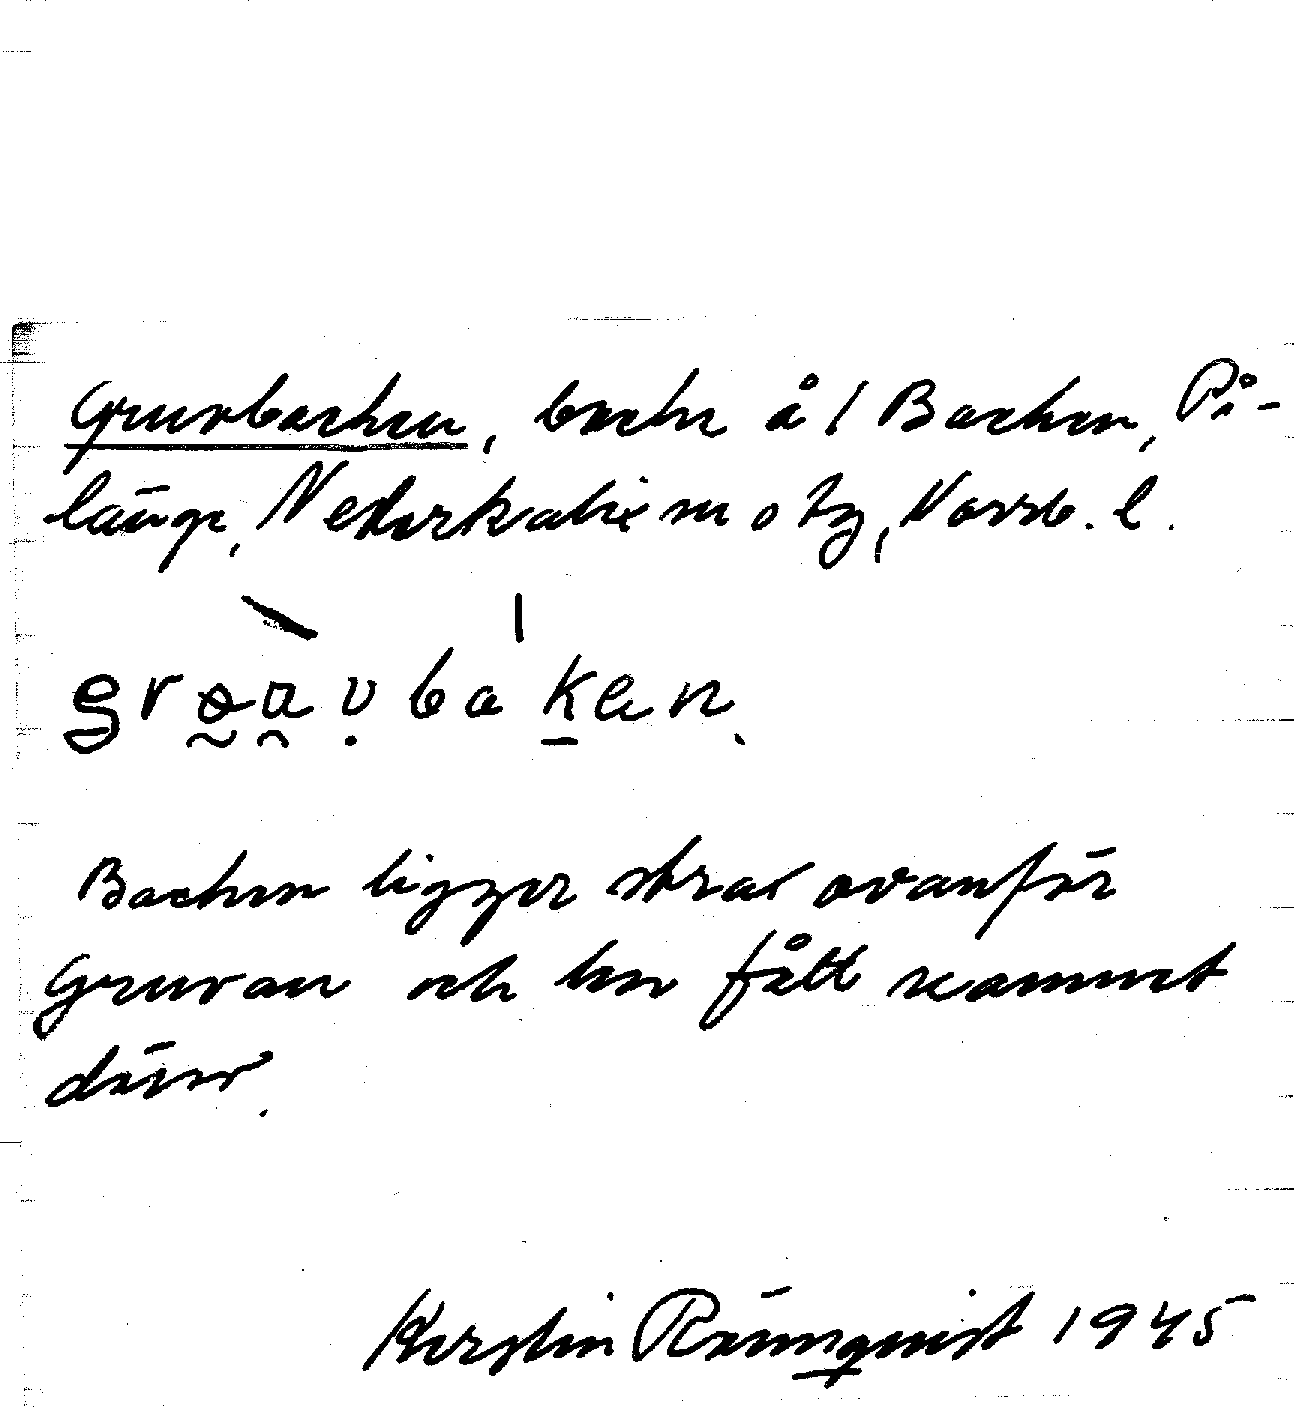 Gruvbacken, backe å / Backen, På-
länge, Nederkalix sn o tg, Norrb. l.
grɵɑvbakan.
Backen ligger strax ovanför
Gruvan och har fått namnet
därav.
Kerstin Rönnquist 1945